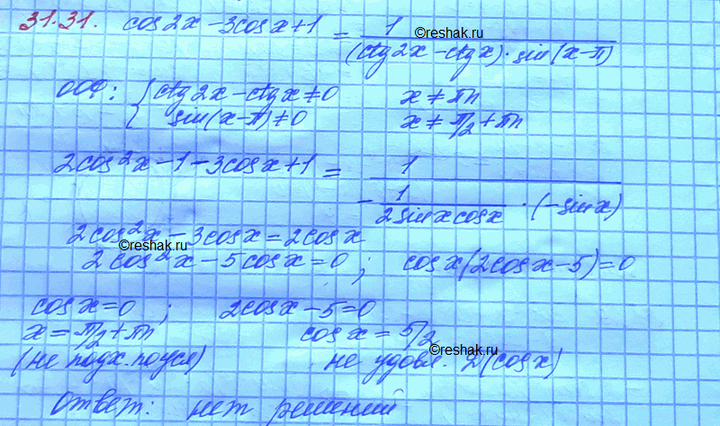 31.31. cos2x - 3cosx + 1 = 1/((ctg2x - ctgx)·sin(x-π))
©reshak.ru
ООФ: { ctg2x - ctgx ≠ 0 x ≠ πn
sin(x-π) ≠ 0 x ≠ π/2 + πn
2cos²x - 1 - 3cosx + 1 = 1/(-1/(2sinxcosx)·(-sinx))
2cos²x - 3cosx = 2cosx
©reshak.ru
2cos²x - 5cosx = 0; cosx(2cosx-5)=0
cosx=0; 2cosx-5=0
x = π/2 + πn cosx = 5/2
©reshak.ru
(не подх. по усл) не удовл. E(cosx)
Ответ: нет решений